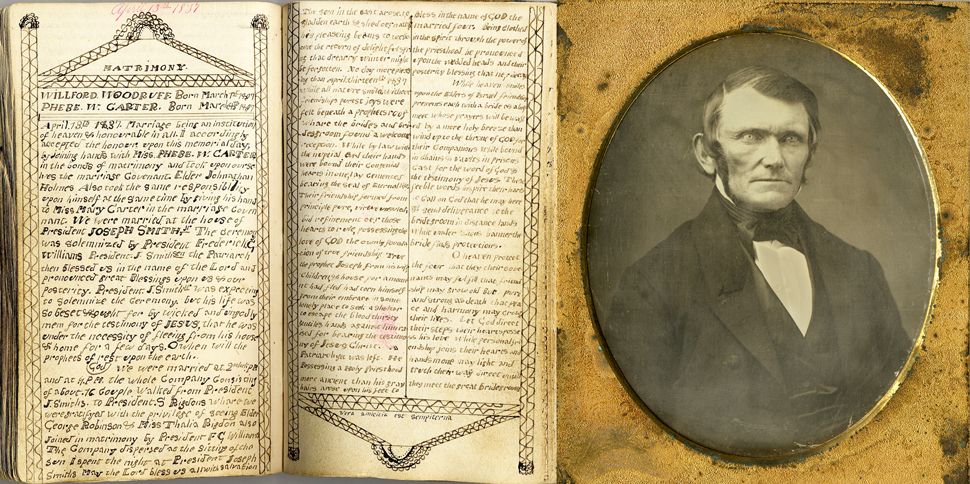 April 13th 1837
MATRIMONY.
WILLFORD. WOODRUFF Born March 1st 1807
PHEBE. W. CARTER. Born March 8th 1807
April. 13th 1837. Marriage being an institution
of heaven & honourable in all. I accordingly
accepted the honour upon this memorial day,
by Joining hands with MISS. PHEBE. W. CARTER
in the bonds of matrimony and took upon ourse-
lves the marriage Covenant. Elder Johnathan
Holmes. Also took the same responsibility
upon himself at the same time by giving his hand
to Miss Mary Carter in the marriage Coven
nant. We were married at the house of
President JOSEPH SMITH, The ceremony
was solemnized by President Frederick G
Williams President J. Smith the Patriarch
then Blessed us in the name of the Lord and
pronounced great Blessings upon us & our
posterity. President J. Smith was expecting
to solemnize the Ceremony. but his life was
so beset & sought for by wicked and ungodly
men for the testimony of JESUS, that he was
under the necessity of fleeing from his house
& home for a few days. O when will the
prophets of rest upon the earth.
We were married at 3
and at 4 PM the whole Company Consisting
of about. Couple walked from President
J. Smiths. to President. S Rigdons where we
were gratifyed with the privilege of seeing Elder
George Robinson & Miss Thalia Rigdon also
Joined in matrimony by President F G Williams
The Company dispersed at the Sitting of the
sun I spent the night at President Joseph
Smiths May the Lord bless us all with salvation
The son in the east arose &
gladden earth & shed oer
his pleasing beams to welco
me the return of delightful
ing that dreary winter might
be forgotten. No day more
ing than April thirteenth 1837
while all nature smiled without
friendships purest joys were
felt beneath a prophets roof
where the brides and bri
degroom found a welcome
reception. While by law with
the nuptial Cord their hands
were bound their Congenial
hearts in one lay Cemented
bearing the seal of Eternal life
Their friendship formed from
principle pure virtue unsullied
did refinement oer those
hearts to rove possessing the
love of GOD the only founda
tion of true friendship. True
the prophet Joseph, from his wife
Children & house for a mom
ent had fled had torn himself
from their embrace in some
lonely place to seek a shelter
to escape the blood thirsty
hands against him
for bearing the testimo
ny of Jesus Christ. But the
Patriarch yet was left. He
Possessing a Holy Priesthood
more ancient than his gray
hairs arose upon his feet to
Bless in the name of GOD the
married four. Being clothed
in the spirit through the power of
the priesthood he pronounced
upon the wedded heads and their
posterity blessing that
While heaven smiles
upon the Elders of Israel friendship
presents each with a bride as a
mer whose prayers will be waf
ted by a more holy breeze than
wind up to the throne of GOD for
their Companions while bound
in Chains in vaults in prisons
Cast for the word of God &
the testimony of Jesus. These
feeble words inspire their hearts
to call on God that he may hear
& send deliverance to the
bridegroom in distance lands
While under Zions banner the
bride finds protections.
O heaven protect
the four that they their cove
nants may fulfil that friend
ship may grow old But pure
and strong as death that peace
and harmony may crown
their lives. Let God direct
their steps
as his lot & While personal fri
endship joins their hearts and
hands move may light and
truth their way direct until
they meet the great Bridegroom
vera amicitia est sempiterna